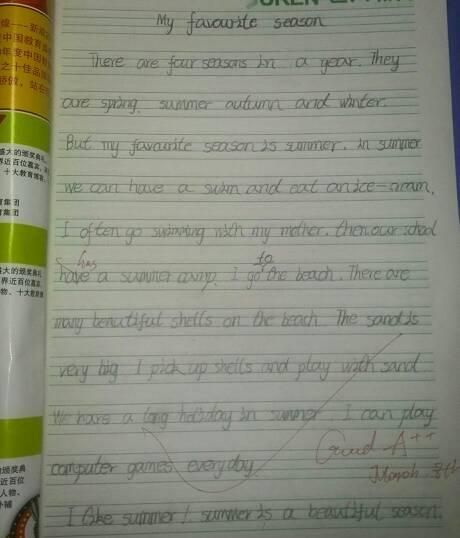 My favourite season
There are four seasons in a year. They
are spring. summer autumn and winter.
But my favourite season is summer. in summer
we can have a swim and eat an ice-cream.
I often go swimming with my mother. then our school
has
have a summer camp. I go to the beach. There are
many beautiful shells on the beach The sand is
very big I pick up shells and play with sand
We have a long holiday in summer. I can play
computer games everyday.
Good A++
March 8th
I like summer! summer is a beautiful season.
盛大的颁奖典礼
界近百位嘉宾
十大教育
育集团
育集团
盛大的颁奖典礼
界近百位嘉宾
物、十大教育
颁奖典
近百位
人物、